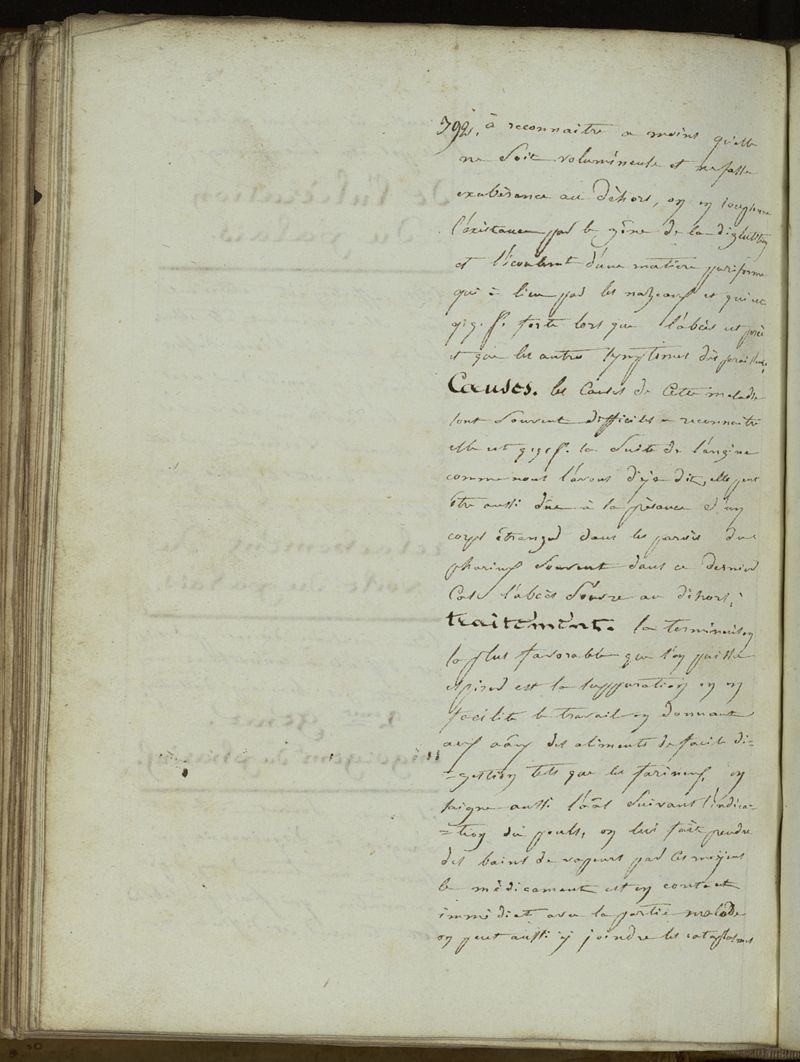 392. à reconnaitre a moins qu'elle
ne soit volumineuse et ne fasse
exubérance au déhors, on en soupconne
l'éxistance par le gêne de la diglutition
et l'écoulemt d'une matière puriforme
qui à lieu par les nazeaux et qui est
qiqf. forte lors que l'abcès est percé
et que les autres symptômes disparaissent,
Causes. les Causes de Cette maladie
sont souvent difficiles a reconnaitre
elle est qiqf. la suite de l'angine
comme nous l'avons déja dit, elle peut
être aussi düe à la présance d'un
corps étranger dans les parois du
pharinx souvent dans ce dernier
Cas l'abcès s'ouvre au déhors;
traitement. la terminaison
la plus favorable que l'on puisse
espérer est la suppuration on en
facilite le travail en donnant
aux aâux des aliments de facile di-
-gestion tels que les farineux, on
saigne aussi l'aâl suivant l'indica-
-tion du pouls, on lui fait prendre
des bains de vapeurs par Ces moyens
le médicament est en contact
immédiat avec la partie malade
on peut aussi y joindre les cataplasmes